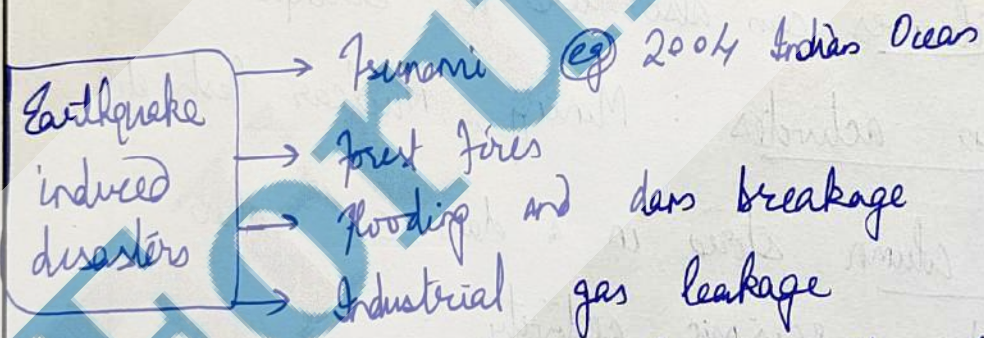 Earthquake induced disasters
→ Tsunami eg 2004 Indian Ocean
→ Forest Fires
→ Flooding and dam breakage
→ Industrial gas leakage
Forum